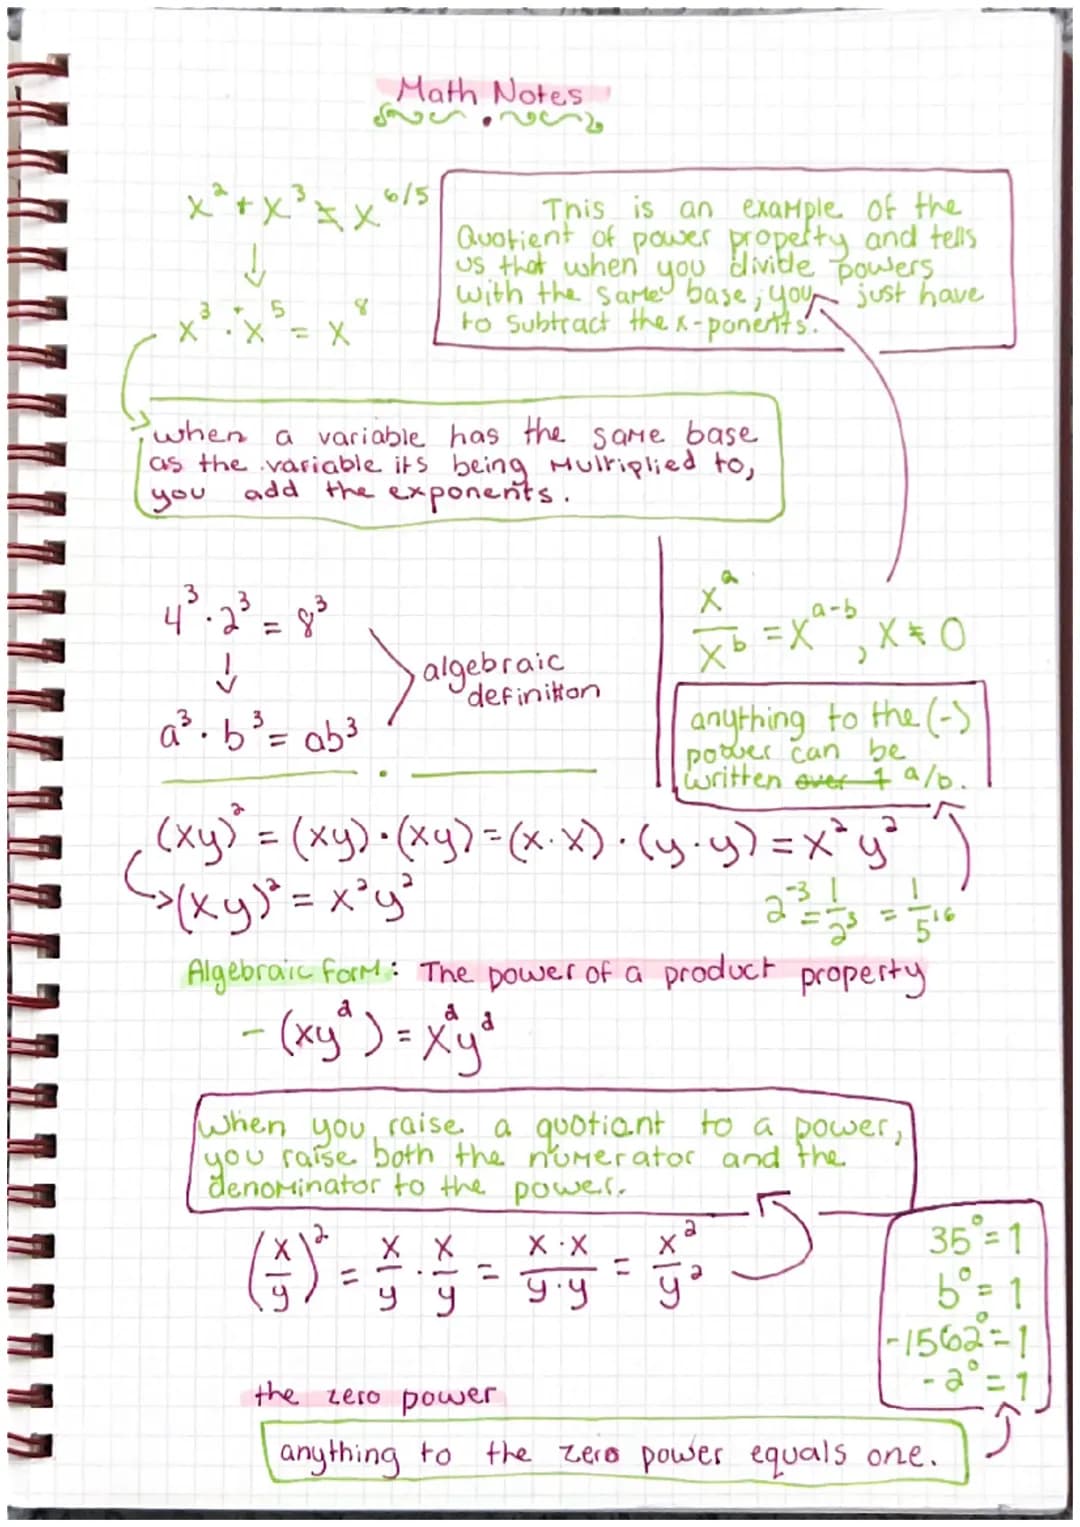 Math Notes
x² + x³ ≠ x^6/5
↓
x³ · x⁵ = x⁸
This is an example of the
Quotient of power property and tells
us that when you divide powers
with the same base, you just have
to subtract the x-ponents.
when a variable has the same base
as the variable its being Multiplied to,
you add the exponents.
4³ · 2³ = 8³
↓
a³ · b³ = ab³
algebraic
definition
x^a / x^b = x^a-b, x ≠ 0
anything to the (-)
power can be
written over 1 a/b.
(xy)² = (xy) · (xy) = (x·x) · (y·y) = x² y²
→ (xy)² = x² y²
2^-3 = 1/2³ = 1/5^16
Algebraic form: The power of a product property
- (xy^a) = x^a y^a
when you raise a quotiant to a power,
you raise both the numerator and the
denominator to the power.
(x/y)² = x/y · x/y = x·x / y·y = x²/y²
35⁰ = 1
b⁰ = 1
-1562⁰ = 1
-2⁰ = 1
the zero power
anything to the zero power equals one.